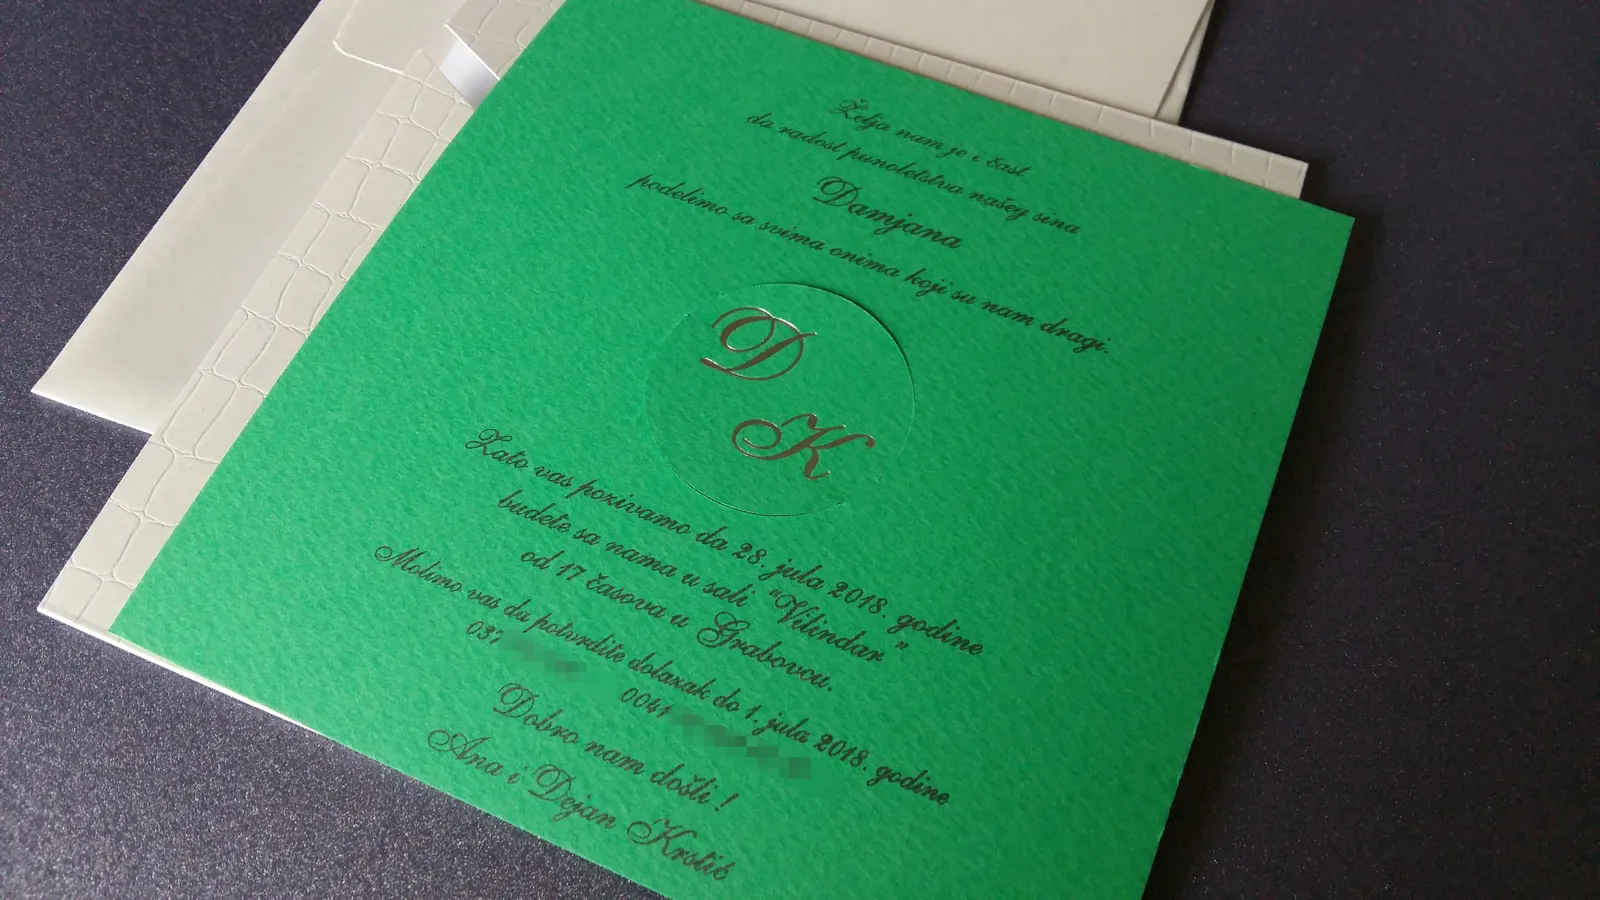 Želja nam je i čast
da radost punoletstva našeg sina
Damjana
podelimo sa svima onima koji su nam dragi.
D
K
Zato vas pozivamo da 28. jula 2018. godine
budete sa nama u sali "Vilindar"
od 17 časova u Grabovcu.
Molimo vas da potvrdite dolazak do 1. jula 2018. godine
037 0041
Dobro nam došli !
Ana i Dejan Krstić